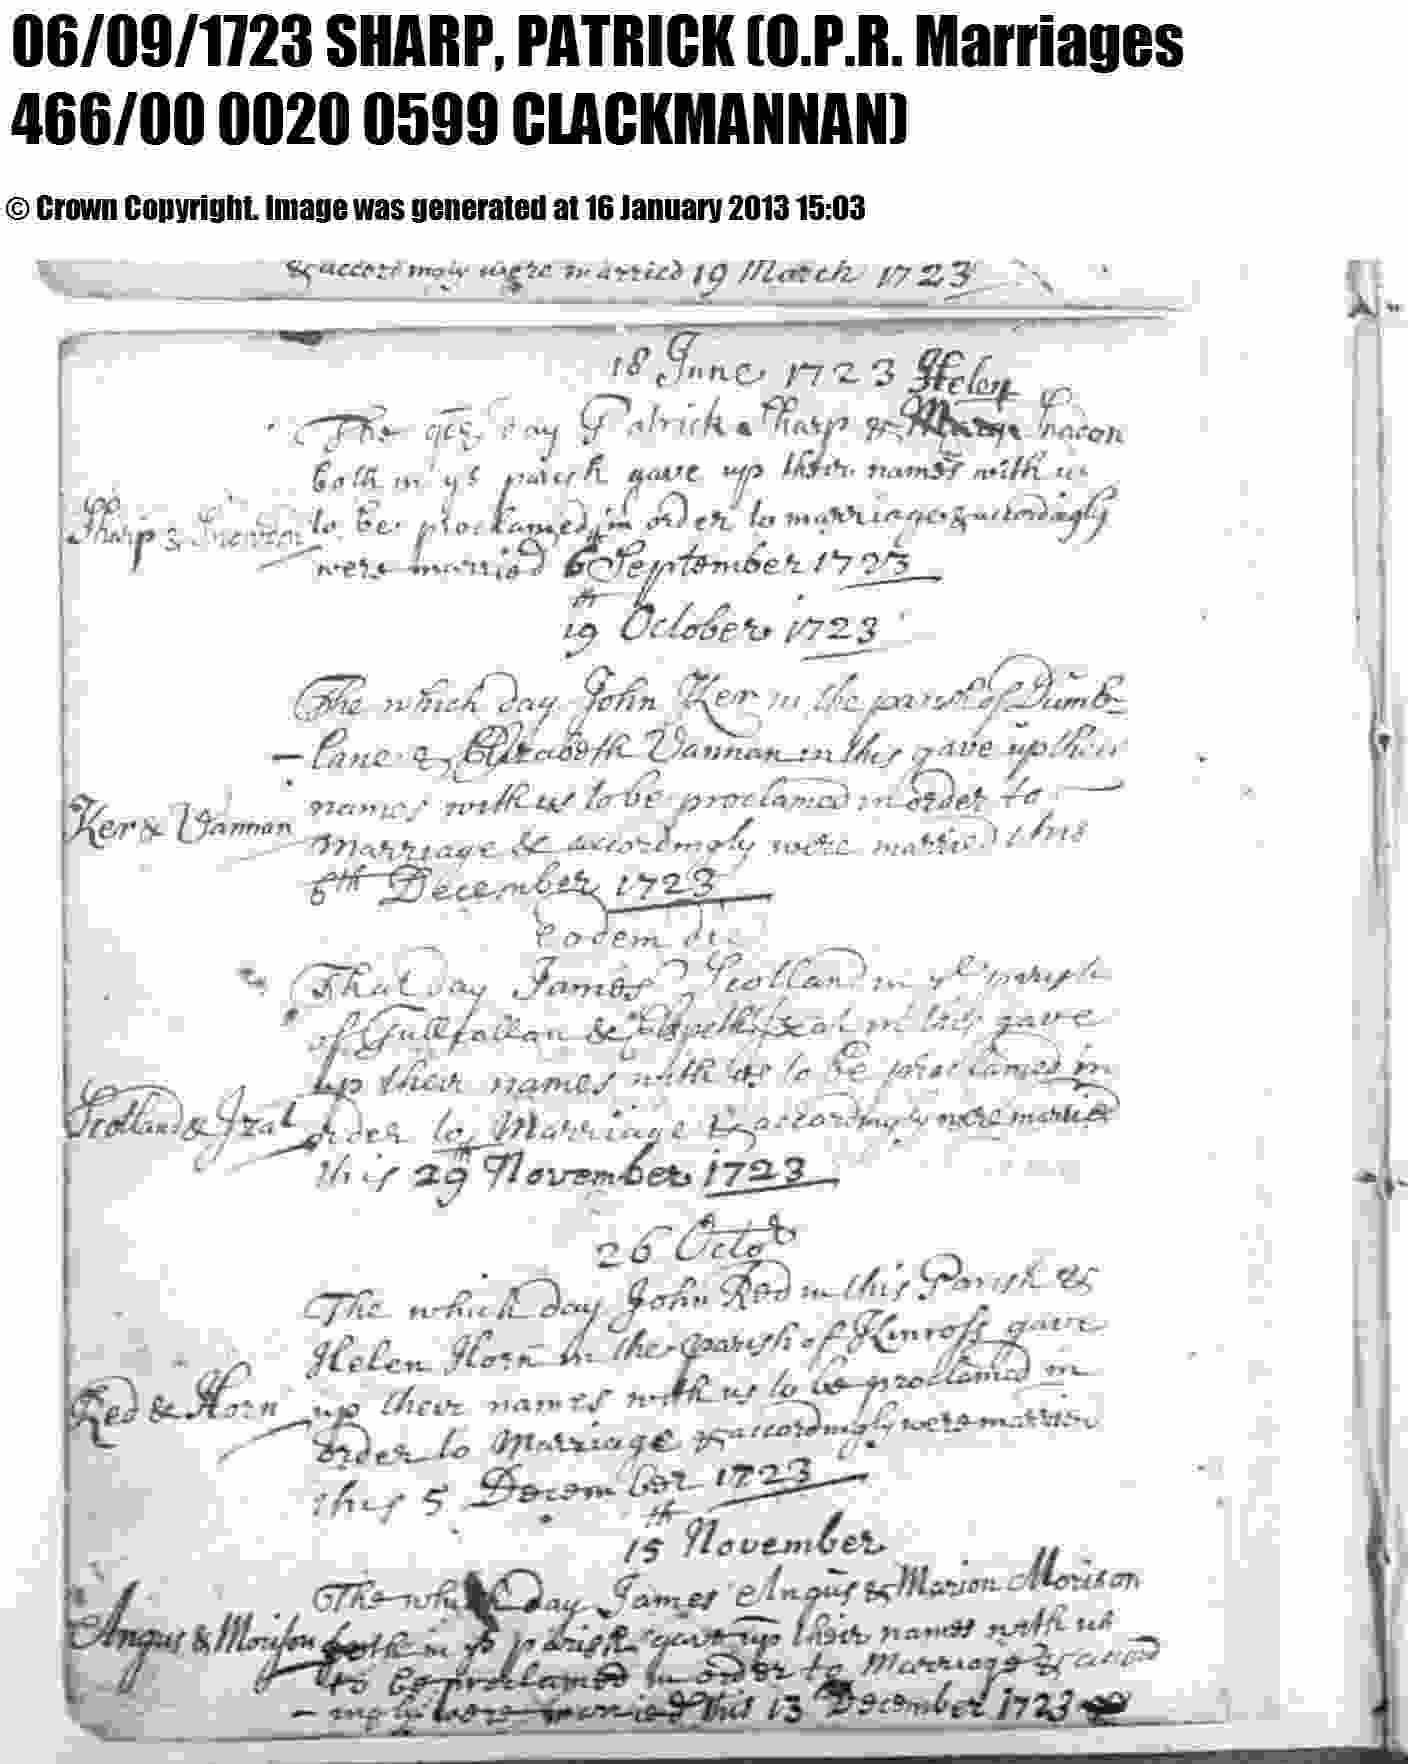 06/09/1723 SHARP, PATRICK (O.P.R. Marriages
466/00 0020 0599 CLACKMANNAN)
© Crown Copyright. Image was generated at 16 January 2013 15:03
& accordingly were married 19 March 1723
18 June 1723 Helen
The day Patrick Sharp & hadon
both in ys parish gave up their names with us
Sharp &
to be proclamed in order to marriage & accordingly
were married 6th September 1723
19th October 1723
The which day John Ker in the parish of Dumb-
-lane & Elizabeth Vannan in this gave up their
names with us to be proclamed in order to
Ker & Vannan
marriage & accordingly were married this
6th December 1723
Eodem die
That day James Scotland in ye parish
of & Elspeth in this gave
up their names with us to be proclamed in
Scotland & Izat
order to Marriage & accordingly were married
this 29th November 1723
26 Octor
The which day John Red in this Parish &
Helen Horn in the parish of Kinross gave
Red & Horn
up their names with us to be proclamed in
order to Marriage & accordingly were married
this 5 December 1723
15th November
The which day James Angus & Marion Morison
Angus & Morison
both in ys parish gave up their names with us
to be proclamed in order to Marriage & accord
-ingly were married this 13 December 1723